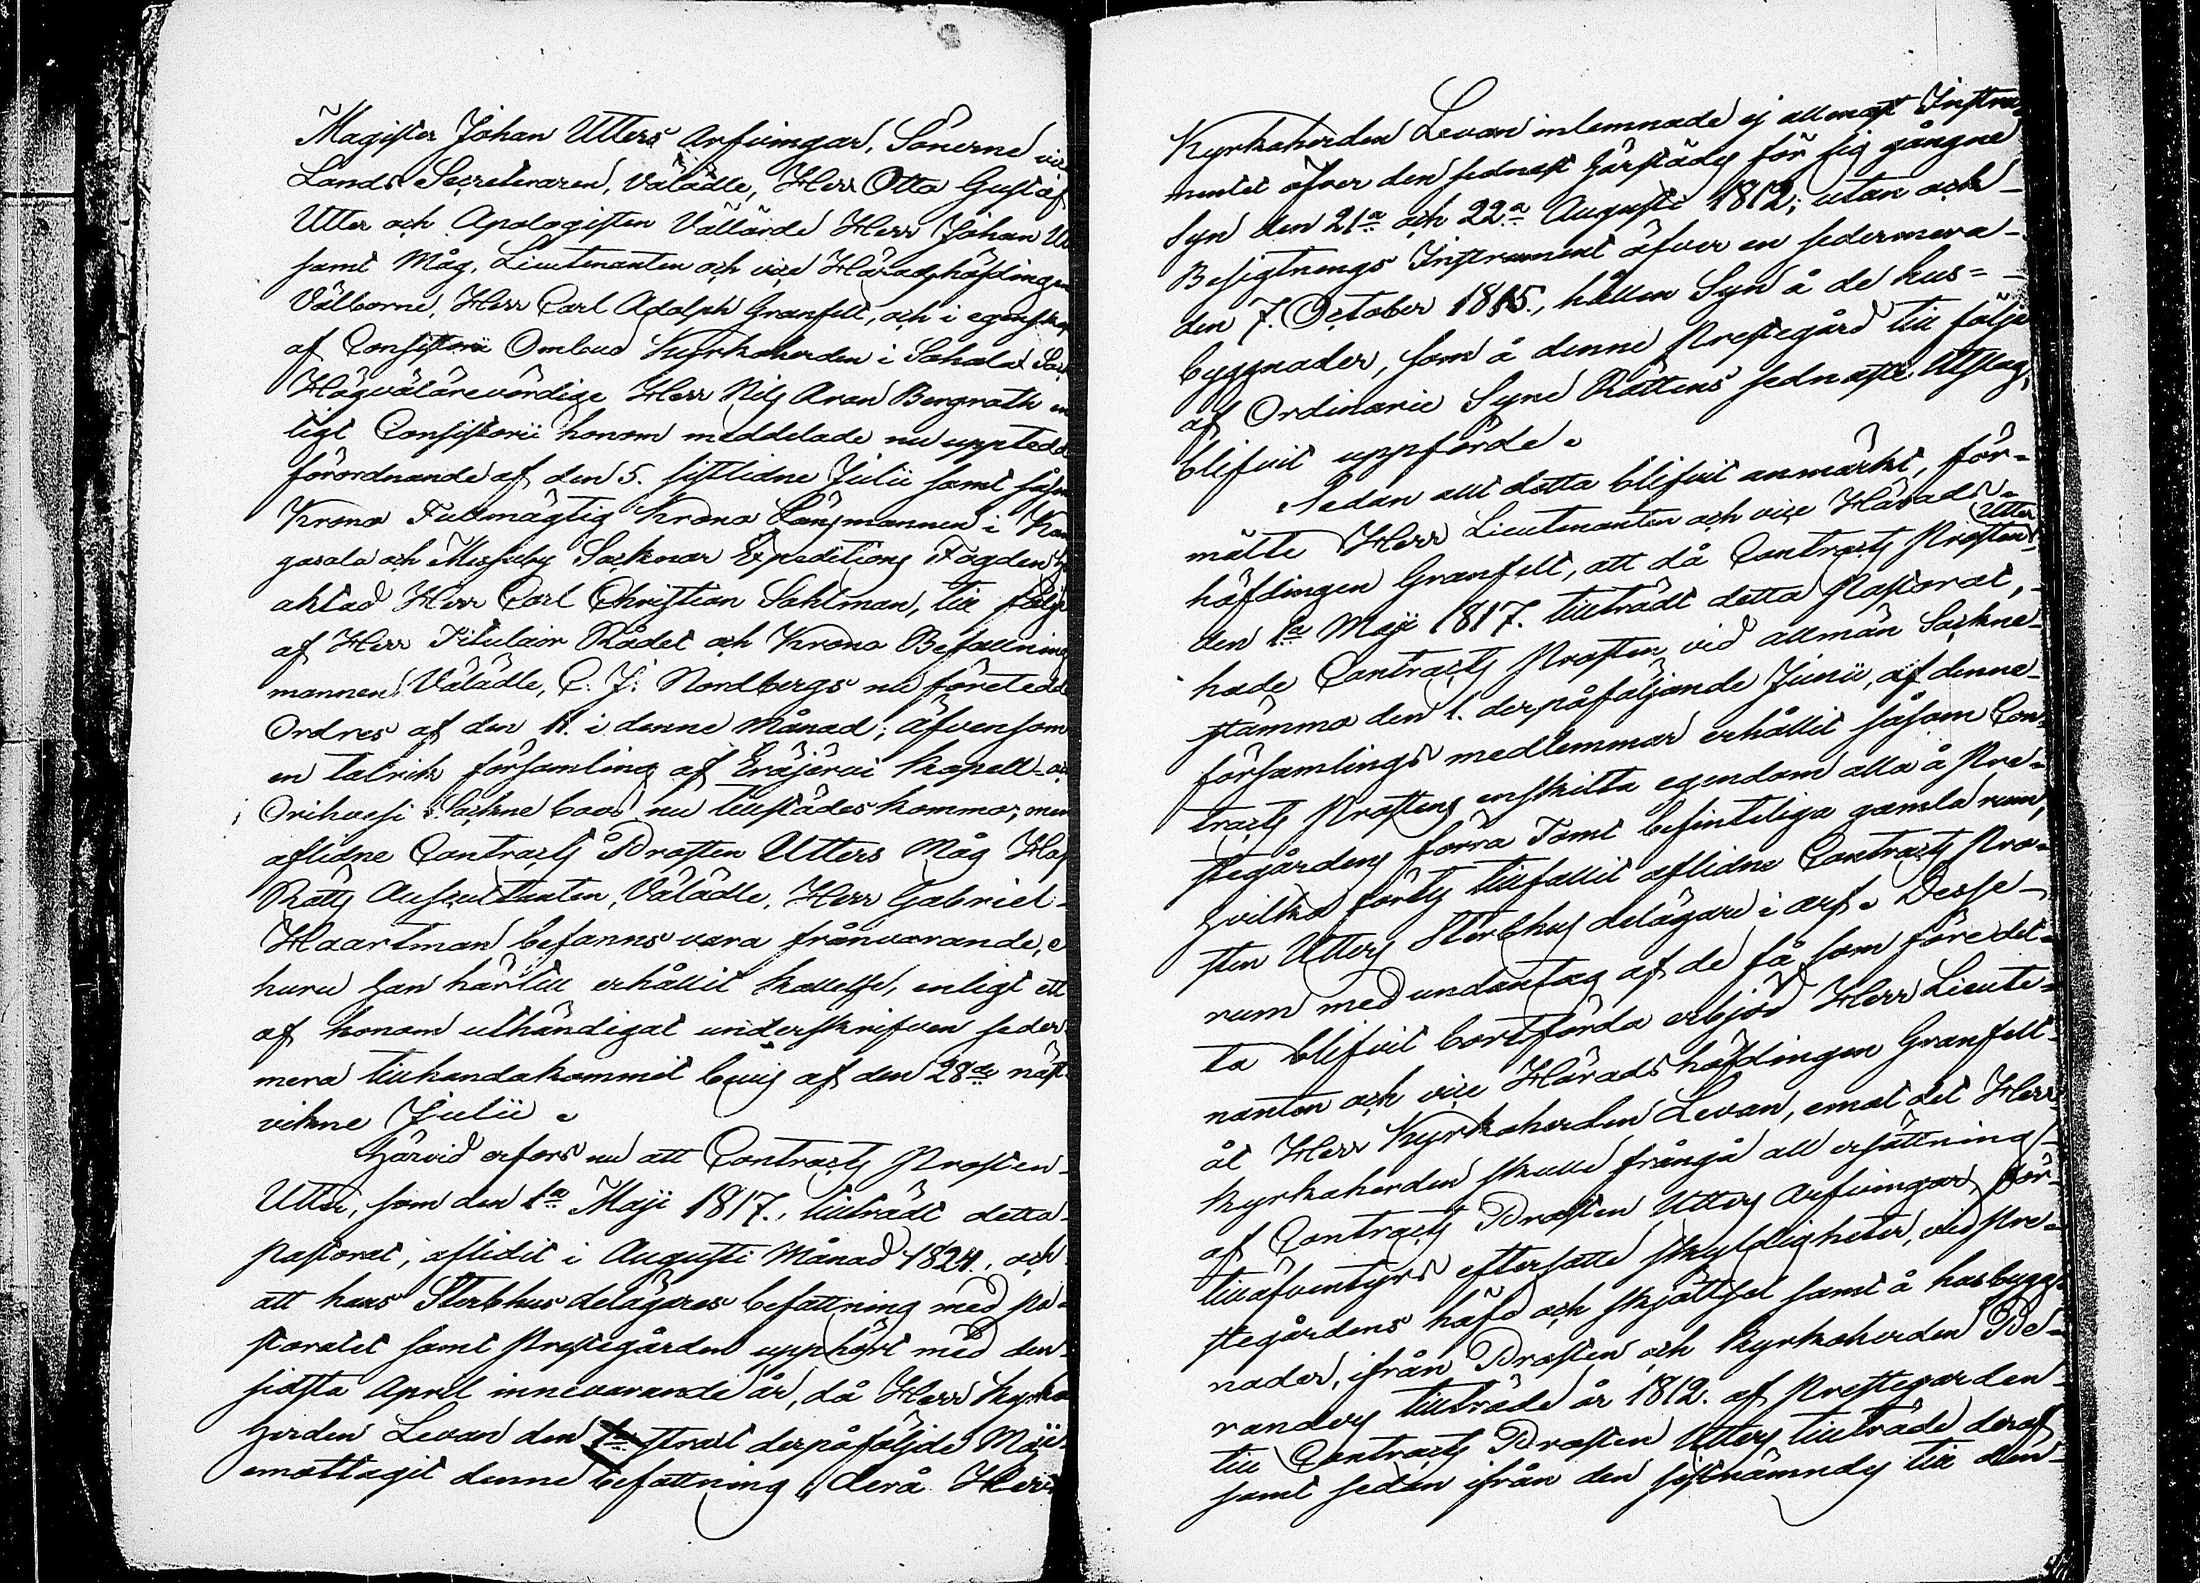 Magister Johan Utters Arfvingar, Sönerne
Lands Secreteraren, Välädle, Herr Otto Gustaf
Utter och Apologisten Vällärde Herr Johan
samt Måg, Lieutenanten och vice Häradshöfdingen
Välborne, Herr Carl Adolph Granfelt, och i egenskap
af Consistorii Ombud Kyrkoherden i Sahalax
Högvälärevördige Herr Nils Aron Bergroth en
ligt Consistorii honom meddelade nu uppted
förordnande af den 5. sistlidne Julii samt såsom
Krono Fullmägtig Krono Länsmannen i Kan
gasala och Messuby Socknar Expeditions Fogden
aktad Herr Carl Christian Sahlman, till följe
af Herr Titulair Rådet och Krono Befallnings
mannen Välädle, C. J. Nordbergs nu företedde
Ordres af den 11. i denne Månad; äfvensom
en talrik församling af Eräjärvi kapell
Orihvesi Sockne boer nu tillstädes kommo; men
aflidne Contracts Prosten Utters Måg Hof
Rätts Auscultanten, Välädle, Herr Gabriel
Haartman befanns vara frånvarande,
huru han härtill erhållit kallelse, enligt ett
af honom uthändigat underskrifven seder
mera tillhandakommit bevis af den 28de näst
vikne Julii.
Härvid erfors nu att Contracts Prosten
Utter, som den 1a Maji 1817., tillträdt detta
pastorat, aflidit i Augusti Månad 1824., och
att hans Sterbhus delägares befattning med pa-
storatet samt Prestegården upphört med den
sidsta April innevarande år, då Herr Kyrko
herden Levan den strax derpåföljde Maji
emottagit denne befattning, derå Herr
Kyrkoherden Levan inlemnade ej allenast Instru-
mentet öfver den sednast härstädes för sig gångne
Syn den 21a och 22a Augusti 1812; utan ock
Besigtnings Instrument öfver en sedermera
den 7. October 1815., hållen Syn å de hus-
byggnader, som å denne Prestegård till följe
af Ordinarie Syne Rättens sednaste Utslag,
blifvit uppförde.
Sedan allt detta blifvit anmärkt, för-
mälte Herr Lieutenanten och vice Härads-
höfdingen Granfelt, att då Contracts Prosten Utter
den 1a Maji 1817. tillträdt detta Pastorat,
hade Contracts Prosten vid allmän Sockne-
stämma den 1. derpåföljande Junii, af denne
församlings medlemmar erhållit såsom Con-
tracts Prostens enskilta egendom alla å Pre-
stegårdens förra Tomt befinteliga gamla rum,
hvilka förts tillfallit aflidne Contracts Pro-
sten Utters Sterbhus delägare i arf. Desse
rum med undantag af de få som före det-
ta blifvit bortförda erbjöd Herr Lieute-
nanten och vice Häradshöfdingen Granfelt
åt Herr Kyrkoherden Levan, emot det Herr
Kyrkoherden skulle frångå all ersättning
af Contracts Prosten Utters Arfvingar, för
tilläfventyrs eftersatte skyldigheter, vid Pre-
stegårdens häfd och skjöttsel samt å husbygg-
nader, ifrån Prosten och Kyrkoherden Be-
randers tillträde år 1812. af Prestegården
till Contracts Prosten Utters tillträde deraf
samt sedan ifrån den sistnämnds till den